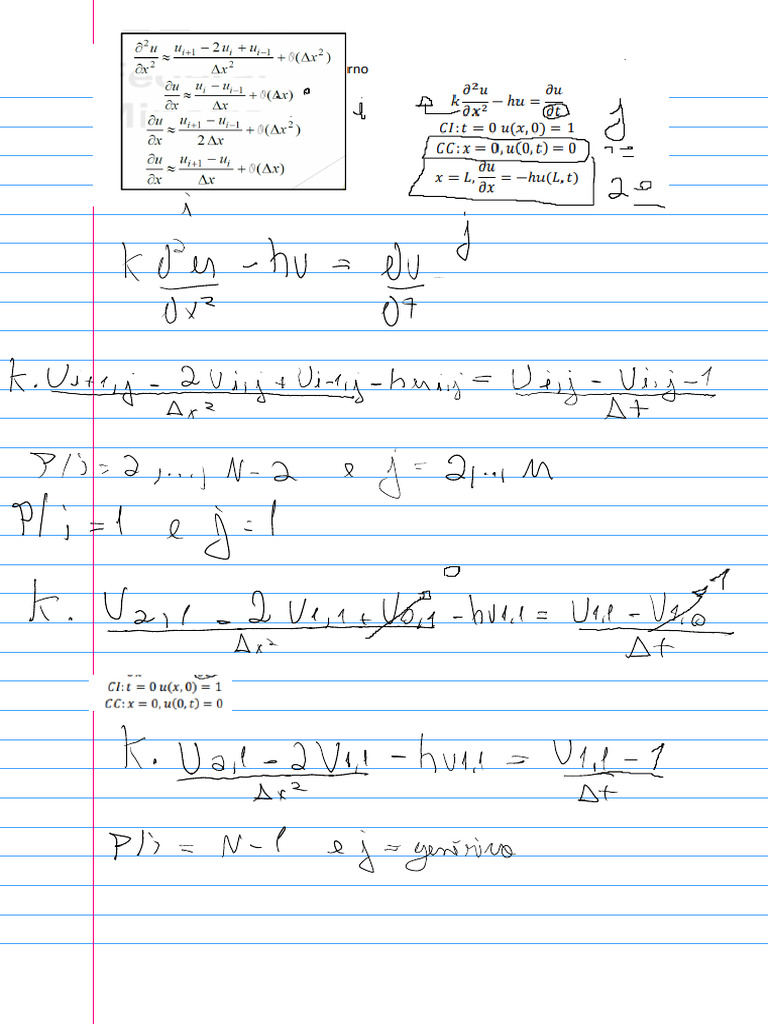 ∂²u/∂x² ≈ (u_{i+1} − 2u_i + u_{i−1})/Δx² + O(Δx²)
∂u/∂x ≈ (u_i − u_{i−1})/Δx + O(Δx)
∂u/∂x ≈ (u_{i+1} − u_{i−1})/(2Δx) + O(Δx²)
∂u/∂x ≈ (u_{i+1} − u_i)/Δx + O(Δx)
i
rno
i
k ∂²u/∂x² − hu = ∂u/∂t
j
CI: t = 0 u(x, 0) = 1
CC: x = 0, u(0, t) = 0
x = L, ∂u/∂x = −hu(L, t)
j
k ∂²u/∂x² − hu = ∂u/∂t
k. (U_{i+1,j} − 2U_{i,j} + U_{i−1,j})/Δx² − hu_{i,j} = (U_{i,j} − U_{i,j−1})/Δt
P/i = 2, ..., N−2 e j = 2, ..., M
P/i = 1 e j = 1
0 1
k. (U_{2,1} − 2U_{1,1} + U_{0,1})/Δx² − hu_{1,1} = (U_{1,1} − U_{1,0})/Δt
CI: t = 0 u(x, 0) = 1
CC: x = 0, u(0, t) = 0
k. (U_{2,1} − 2U_{1,1})/Δx² − hu_{1,1} = (U_{1,1} − 1)/Δt
P/i = N−1 e j = genérico